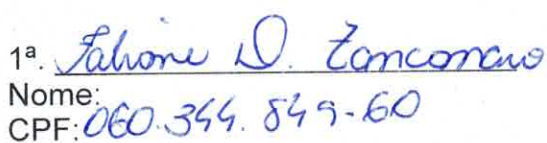 1ª. Fabiane D. Zanconaro
Nome:
CPF: 060.344.849-60